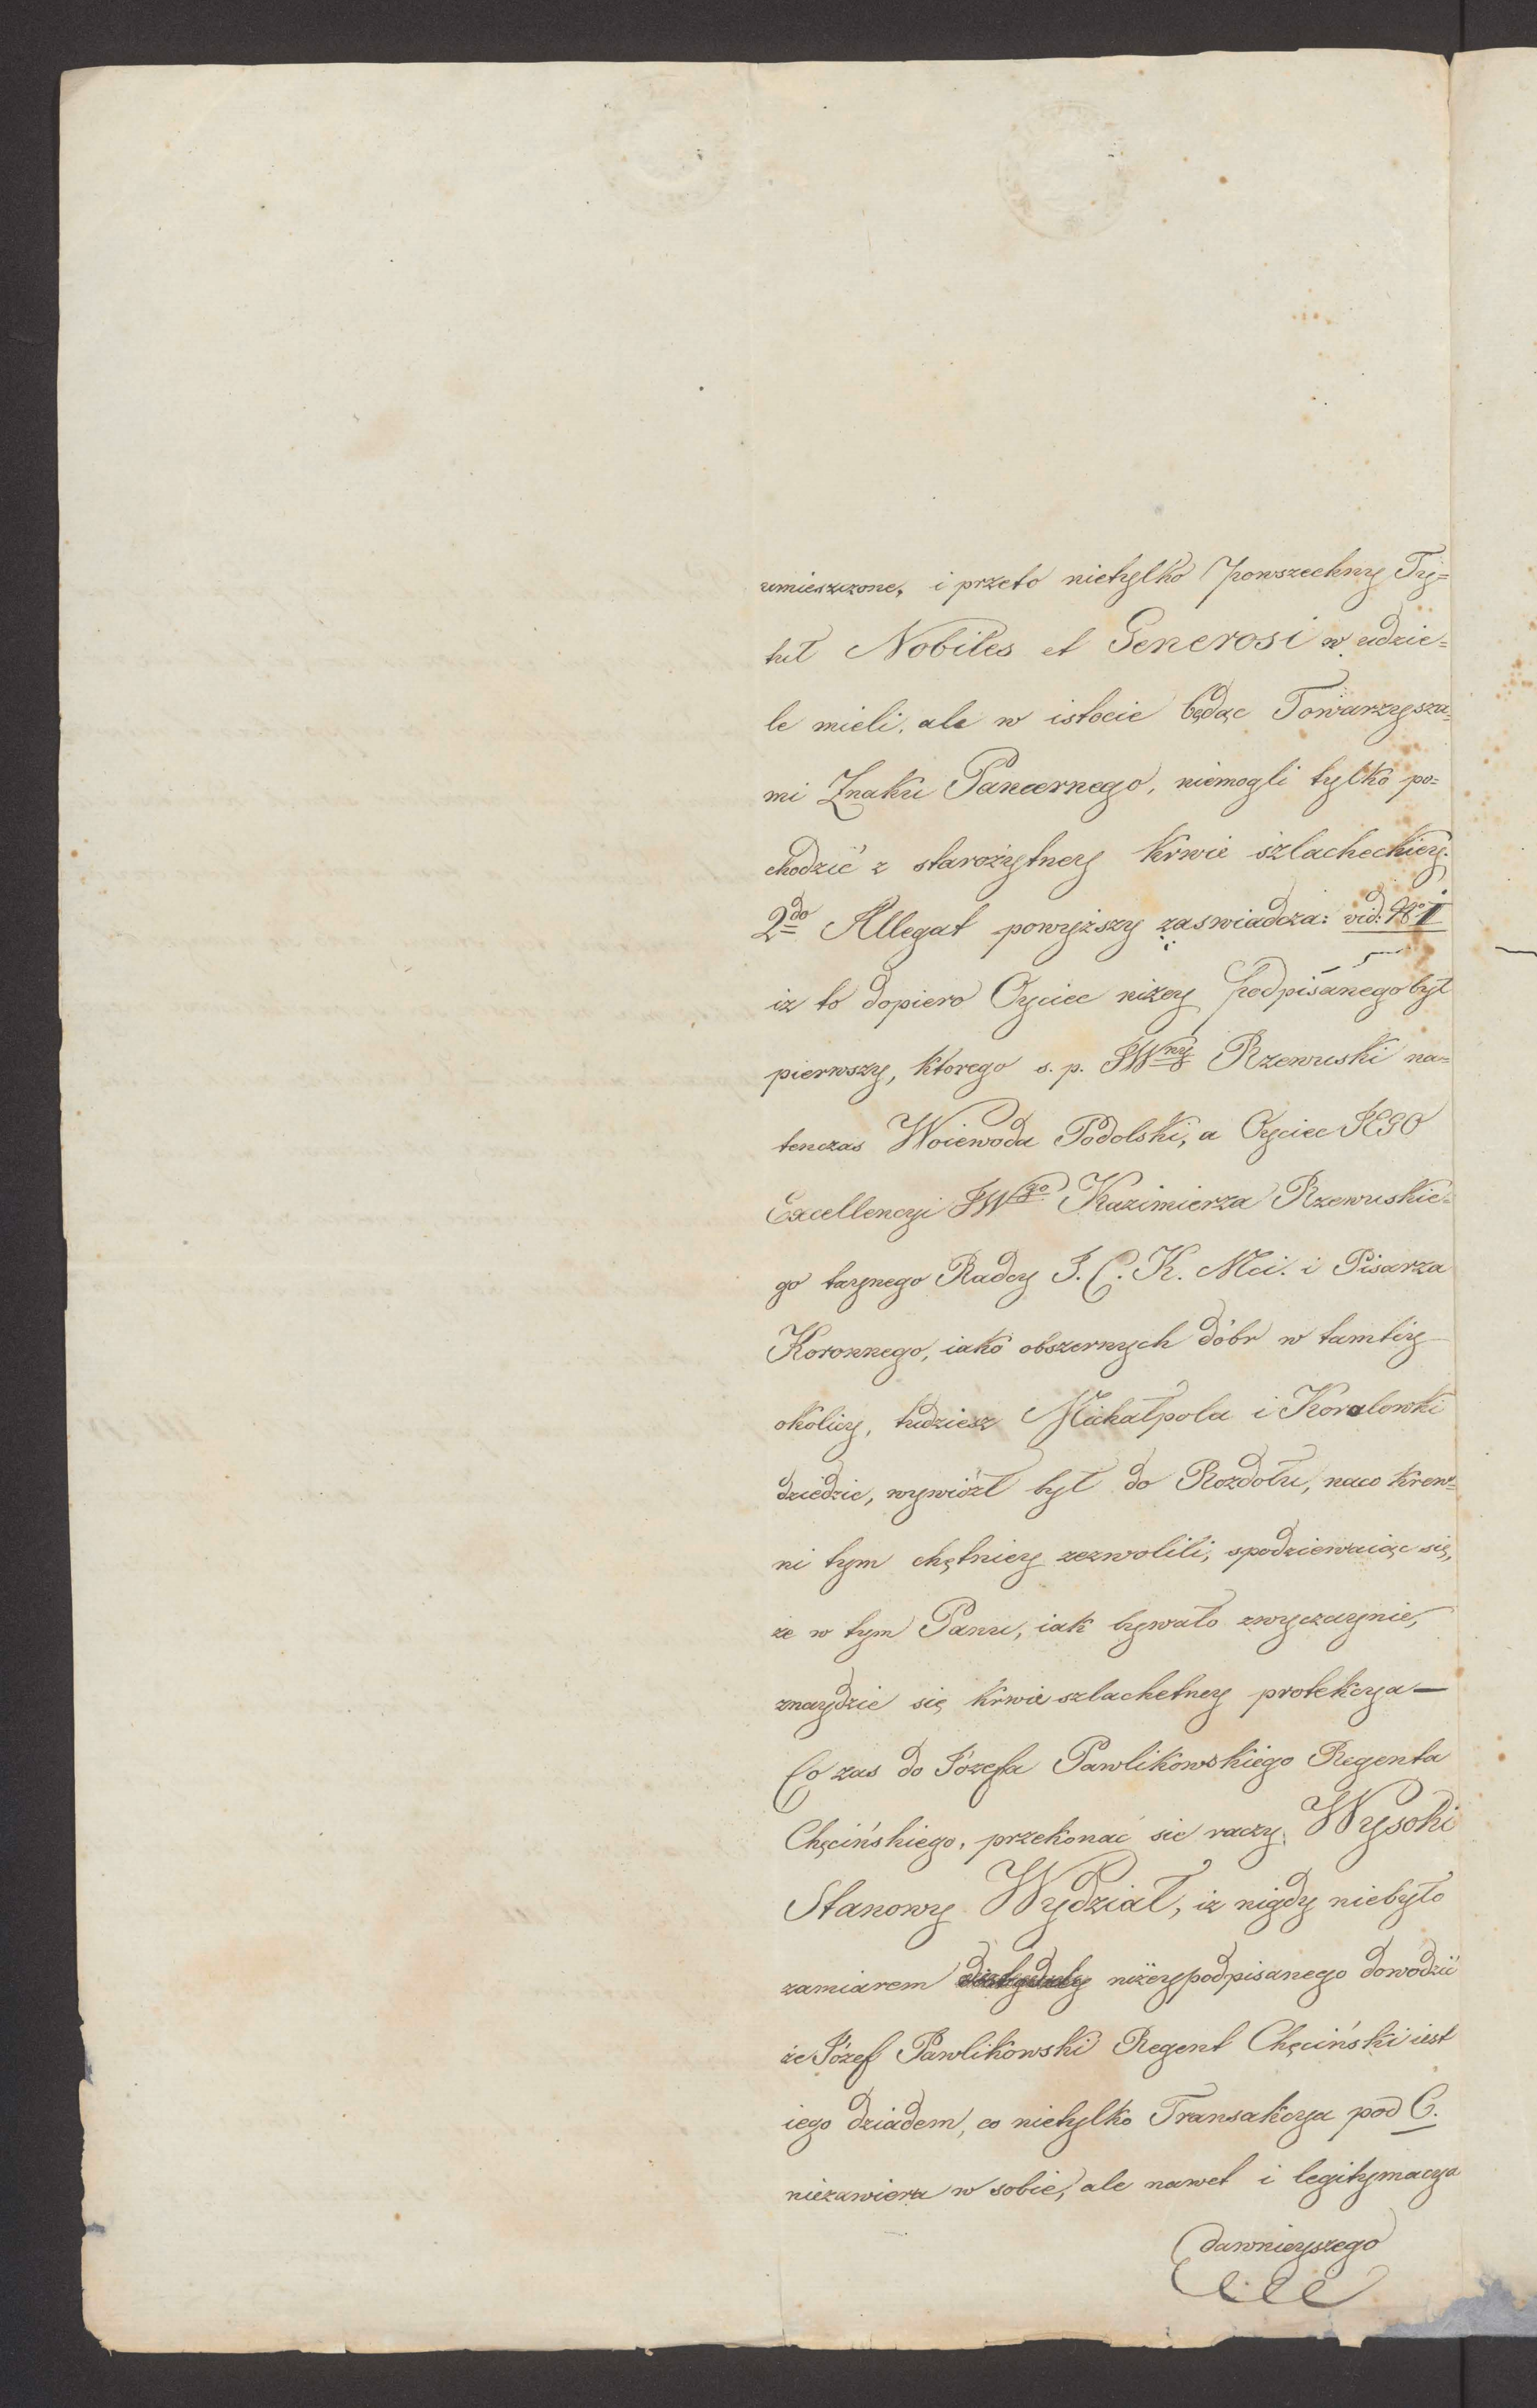 umieszczone, i przeto nietylko powszechny Ty=
tuł Nobiles et Generosi w udzie=
le mieli, ale w istocie będąc Towarzysza=
mi Znaku Pancernego, niemogli tylko po=
chodzić z starożytney krwie szlacheckiey.
2do Allegat powyższy zaswiadcza: vid: No I
iz to dopiero Oyciec niżey podpisanego był
pierwszy, ktorego s. p. JWny Rzewuski na=
tenczas Woiewoda Podolski, a Oyciec JEGO
Excellencyi JWgo Kazimierza Rzewuskie=
go taynego Radcy J. C. K. Mci. i Pisarza
Koronnego, iako obszernych dóbr w tamtey
okolicy, tudziesz Michałpola i Koralowki
dziedzic, wywiózł był do Rozdołu, naco krew=
ni tym chętniey zezwolili, spodziewaiąc się,
że w tym Panu, iak bywało zwyczaynie,
znaydzie się krwie szlachetney protekcya —
Co zas do Józefa Pawlikowskiego Regenta
Chęcińskiego, przekonać sie raczy Wysoki
Stanowy Wydział, iz nigdy niebyło
zamiarem niżeypodpisanego dowodzić
że Józef Pawlikowski Regent Chęciński iest
iego dziadem, co nietylko Transakcya pod C.
niezawiera w sobie, ale nawet i legitymacya
dawnieyszego